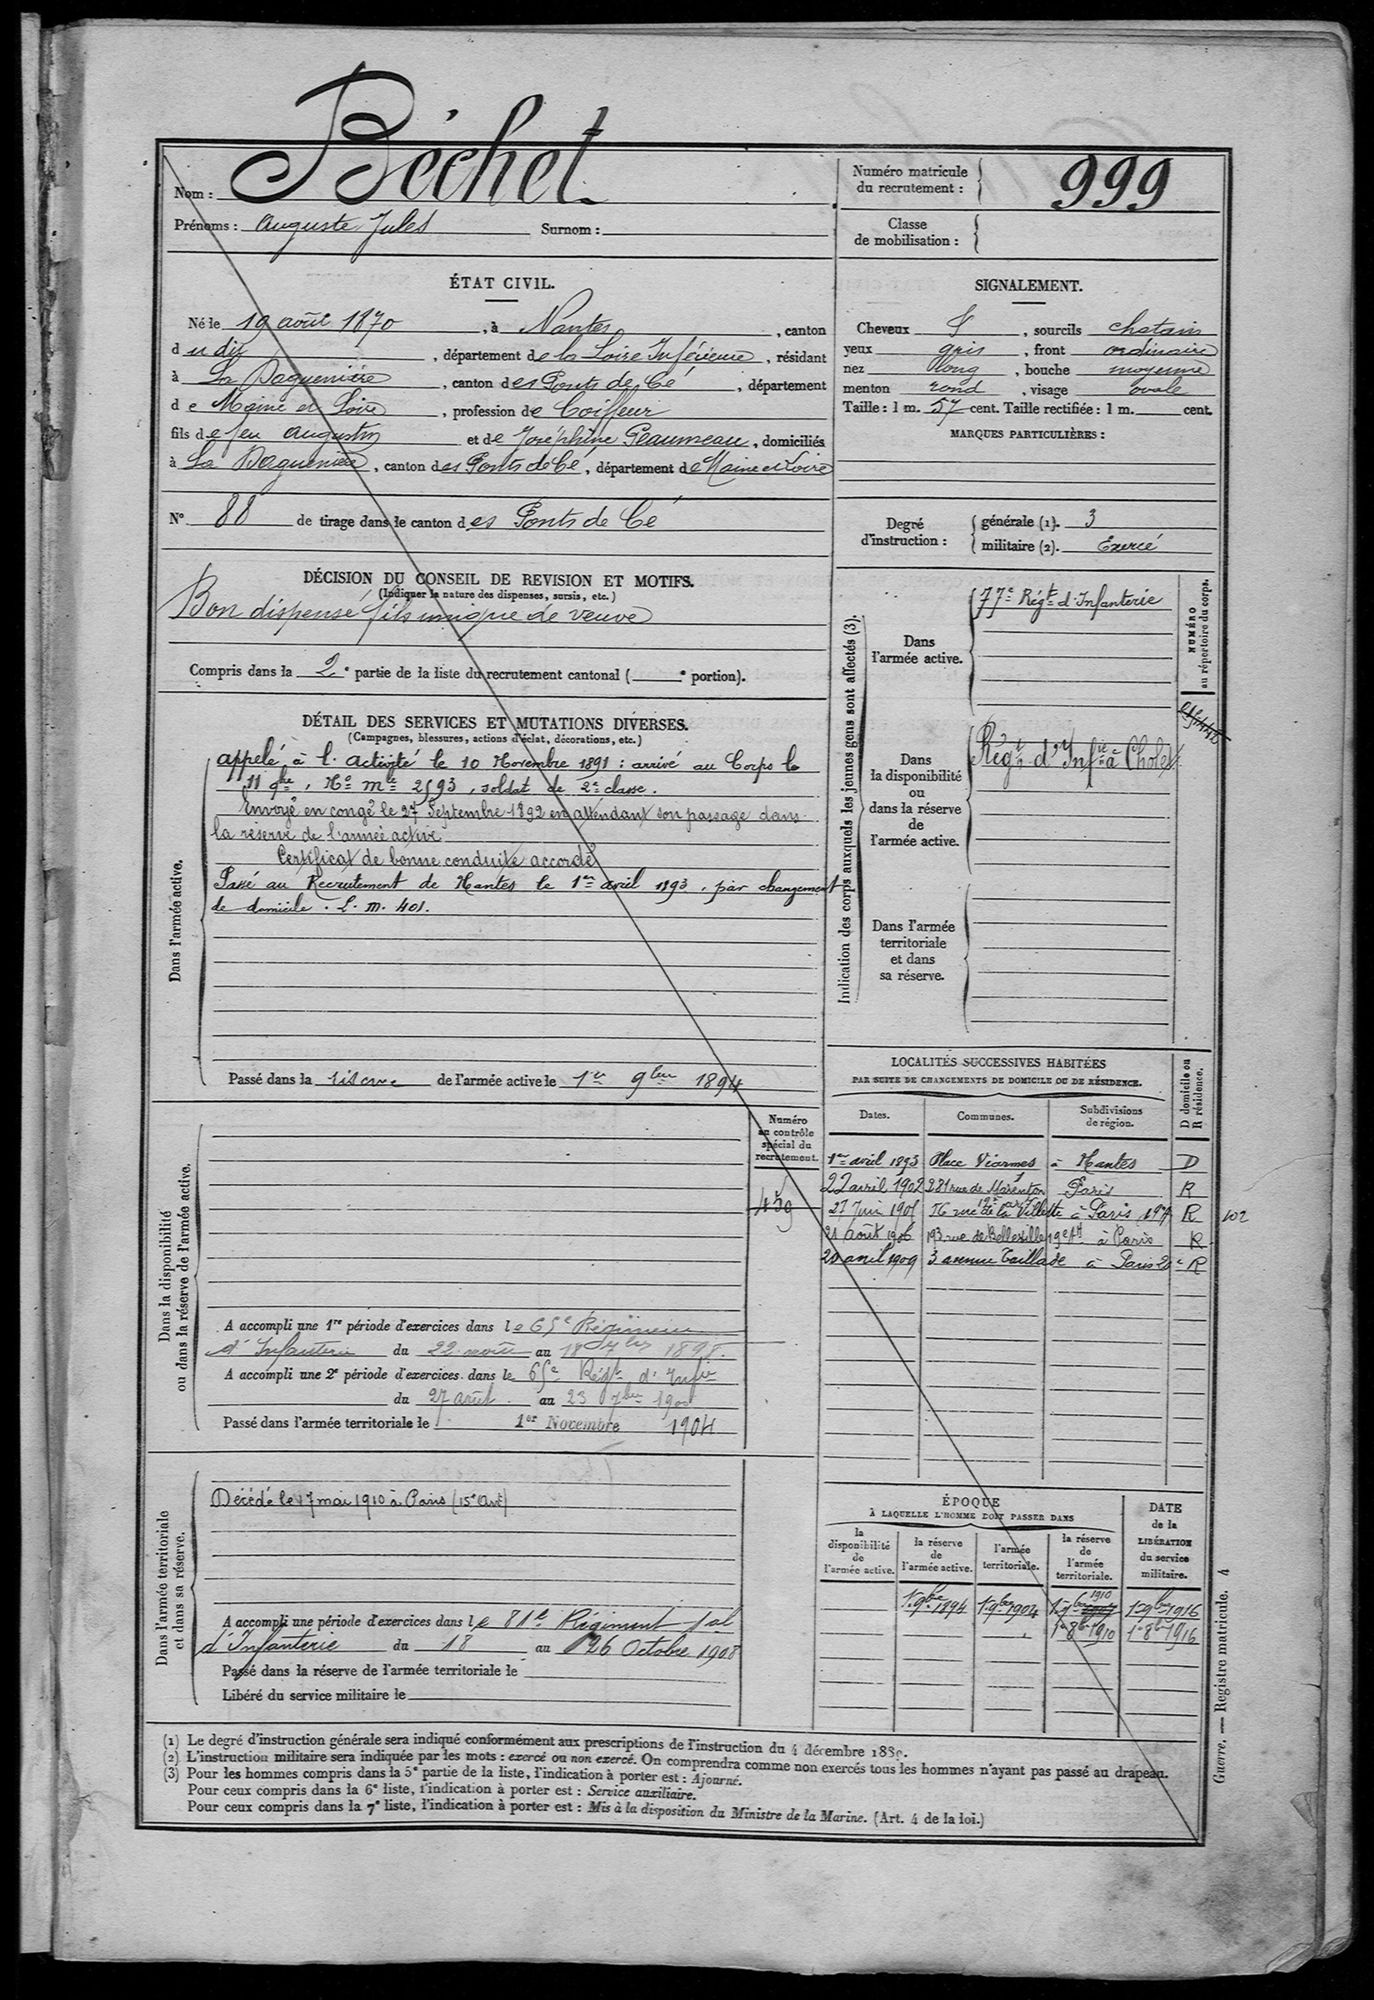 Nom : Béchet
Prénoms : Auguste Jules Surnom :
Numéro matricule du recrutement : 999
Classe de mobilisation :
ÉTAT CIVIL.
Né le 19 août 1870, à Nantes, canton
d u dit, département de la Loire Inférieure, résidant
à La Daguenière, canton des Ponts de Cé, département
de Maine et Loire, profession de Coiffeur
fils de feu Augustin et de Joséphine Peaumeau, domiciliés
à La Daguenière, canton des Ponts de Cé, département de Maine et Loire
N° 88 de tirage dans le canton des Ponts de Cé
SIGNALEMENT.
Cheveux, sourcils chatain
yeux gris, front ordinaire
nez long, bouche moyenne
menton rond, visage ovale
Taille : 1 m. 57 cent. Taille rectifiée : 1 m. cent.
MARQUES PARTICULIÈRES :
Degré d'instruction : générale (1). 3
militaire (2). Exercé
DÉCISION DU CONSEIL DE REVISION ET MOTIFS.
(Indiquer la nature des dispenses, sursis, etc.)
Bon dispensé fils unique de veuve
Compris dans la 2e partie de la liste du recrutement cantonal ( e portion).
DÉTAIL DES SERVICES ET MUTATIONS DIVERSES.
(Campagnes, blessures, actions d'éclat, décorations, etc.)
Dans l'armée active.
appelé à l'activité le 10 Novembre 1891 : arrivé au Corps le
11 9bre, No mle 2593, soldat de 2e classe.
Envoyé en congé le 27 Septembre 1892 en attendant son passage dans
la réserve de l'armée active
Certificat de bonne conduite accordé
Passé au Recrutement de Nantes le 1er avril 1893, par changement
de domicile. L. m. 401.
Passé dans la réserve de l'armée active le 1er 9bre 1894
Indication des corps auxquels les jeunes gens sont affectés (3).
NUMÉRO au répertoire du corps.
Dans l'armée active.
77e Régt d'Infanterie
Dans la disponibilité ou dans la réserve de l'armée active.
Régt d'Infie à Cholet
Dans l'armée territoriale et dans sa réserve.
LOCALITÉS SUCCESSIVES HABITÉES
PAR SUITE DE CHANGEMENTS DE DOMICILE OU DE RÉSIDENCE.
Dates. Communes. Subdivisions de région. D domicile ou R résidence.
1er avril 1893 Place Viarmes à Nantes D
22 avril 1902 281 rue de Paris R
27 Juin 1905 rue de la Villette à Paris 19e R 102
21 Août 1906 193 rue de Belleville 19e Att à Paris R
20 avril 1909 3 avenue Taillade à Paris 20e R
Dans la disponibilité ou dans la réserve de l'armée active.
Numéro au contrôle spécial du recrutement.
459
A accompli une 1re période d'exercices dans le 65e Régiment
d'Infanterie du 22 août au 18 7bre 1898.
A accompli une 2e période d'exercices dans le 65e Régt d'Infie
du 27 août au 23 7bre 1900
Passé dans l'armée territoriale le 1er Novembre 1904
Dans l'armée territoriale et dans sa réserve.
Décédé le 17 mai 1910 à Paris (15e Art)
A accompli une période d'exercices dans le 81e Régiment tal
d'Infanterie du 18 au 26 Octobre 1908
Passé dans la réserve de l'armée territoriale le
Libéré du service militaire le
ÉPOQUE
À LAQUELLE L'HOMME DOIT PASSER DANS
la disponibilité de l'armée active. la réserve de l'armée active. l'armée territoriale. la réserve de l'armée territoriale.
DATE de la LIBÉRATION du service militaire.
1er 9bre 1894 1er 9bre 1904 1er 9bre 1910 1er 9bre 1916
1er 8bre 1910 1er 8bre 1916
(1) Le degré d'instruction générale sera indiqué conformément aux prescriptions de l'instruction du 4 décembre 1889.
(2) L'instruction militaire sera indiquée par les mots : exercé ou non exercé. On comprendra comme non exercés tous les hommes n'ayant pas passé au drapeau.
(3) Pour les hommes compris dans la 5e partie de la liste, l'indication à porter est : Ajourné.
Pour ceux compris dans la 6e liste, l'indication à porter est : Service auxiliaire.
Pour ceux compris dans la 7e liste, l'indication à porter est : Mis à la disposition du Ministre de la Marine. (Art. 4 de la loi.)
Guerre. — Registre matricule. 4